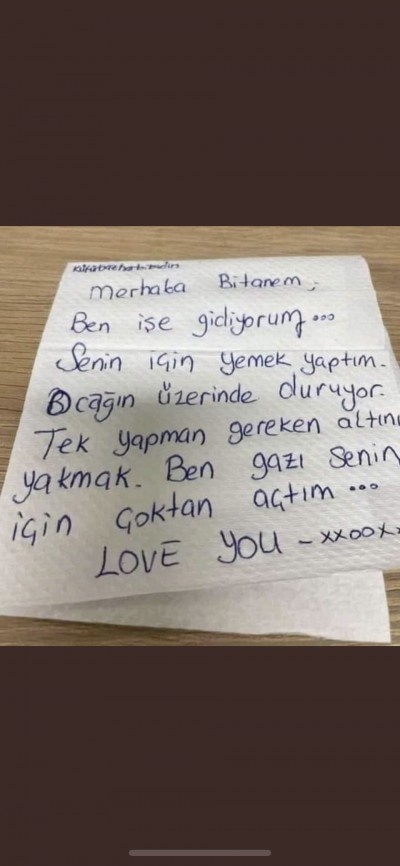 merhaba Bitanem,
Ben işe gidiyorum...
Senin için yemek yaptım.
Ocağın üzerinde duruyor.
Tek yapman gereken altını
yakmak. Ben gazı senin
için çoktan açtım...
LOVE YOU - xxoox